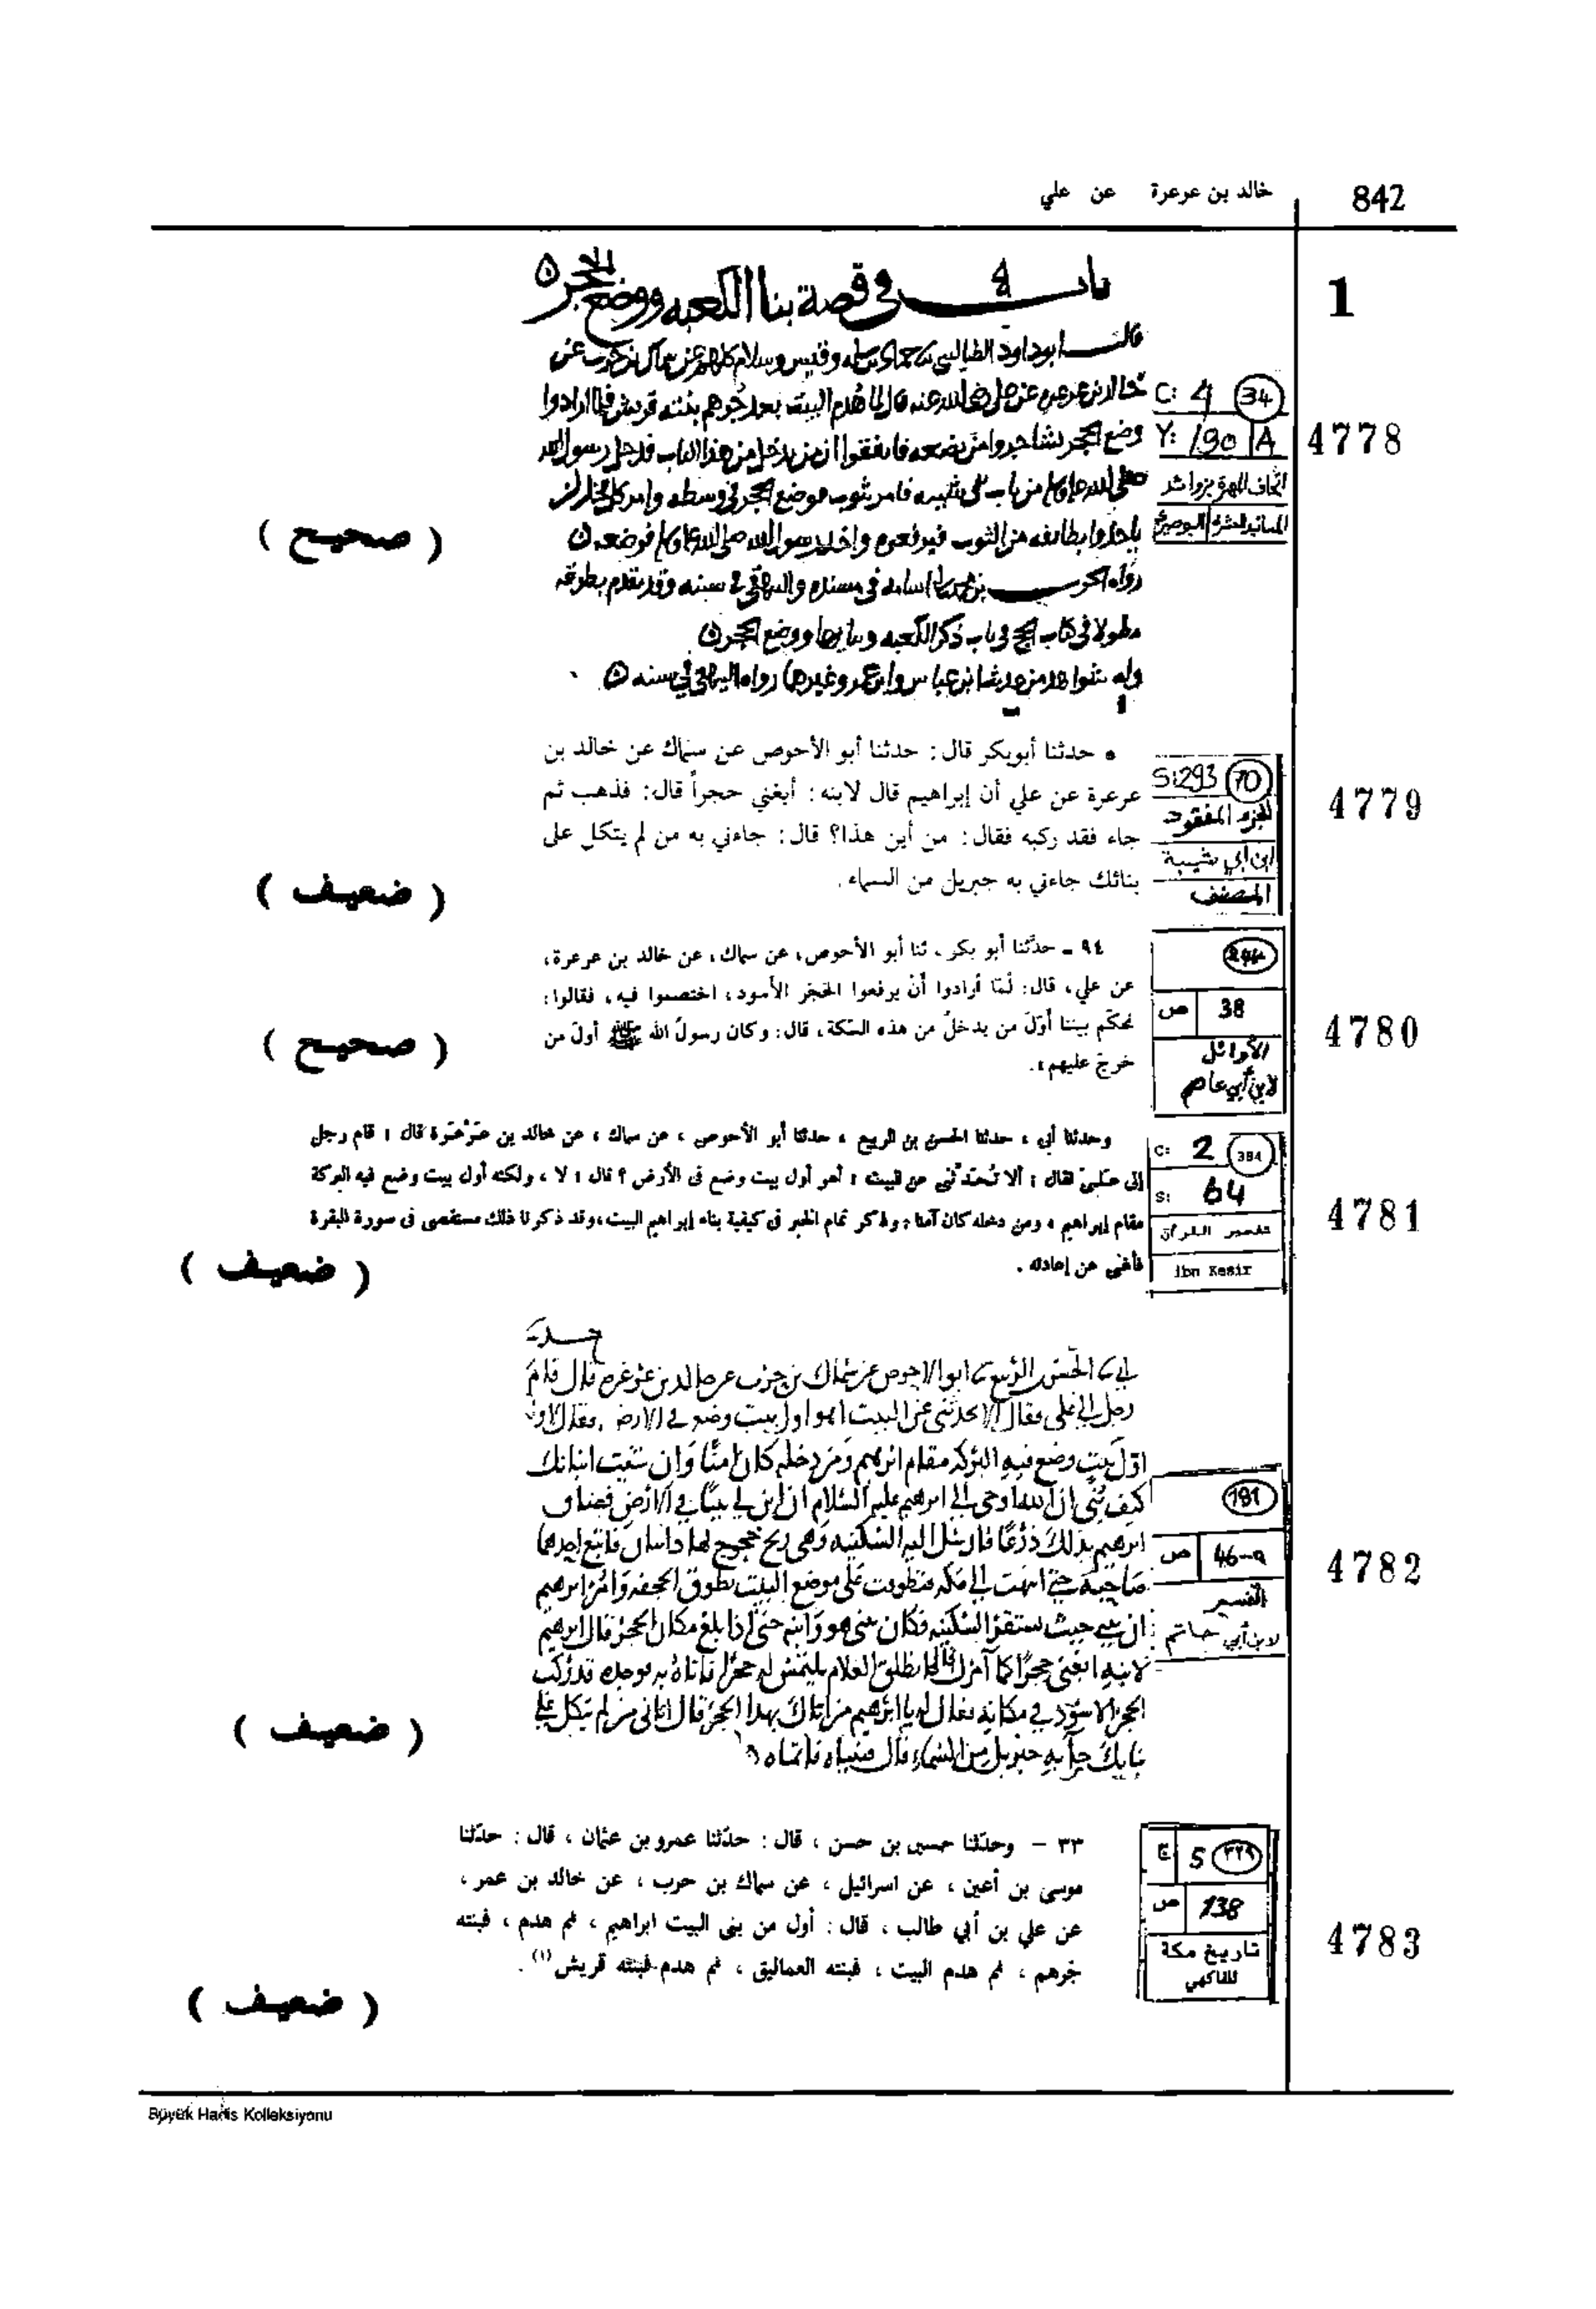 842
خالد بن عرعرة عن علي
1
باب في قصة بنا الكعبه ووضع الحجر
قال ابو داود الطيالسي ثنا حماد بن سلمه وقيس وسلام كلهم عن سماك بن حرب عن
خالد بن عرعره عن علي رضي الله عنه قال لما هدم البيت بعد جرهم بنته قريش فلما ارادوا
وضع الحجر تشاجروا من يضعه فاتفقوا ان من يدخل من هذا الباب فدخل رسول الله
صلى الله عليه وسلم من باب بني شيبه فامر بثوب فوضع الحجر في وسطه وامر كل فخذ ان
ياخذوا بطائفه من الثوب فيرفعوه واخذه رسول الله صلى الله عليه وسلم فوضعه
رواه الحرث بن محمد بن ابي اسامه في مسنده والبيهقي في سننه وقد تقدم بطرقه
مطولا في كتاب الحج في باب ذكر الكعبه وبنايها ووضع الحجر
وله شواهد من حديث ابن عباس وابن عمر وغيرهما رواه البيهقي في سننه
C: 4 34
Y: 190 A
اتحاف المهرة بزوائد
المسانيد العشرة البوصيري
4778
( صحيح )
• حدثنا أبوبكر قال: حدثنا أبو الأحوص عن سماك عن خالد بن
عرعرة عن علي أن إبراهيم قال لابنه: أبغني حجراً قال: فذهب ثم
جاء فقد ركبه فقال: من أين هذا؟ قال: جاءني به من لم يتكل على
بنائك جاءني به جبريل من السماء.
S:293 70
الجزء المفقود
ابن ابي شيبة
المصنف
4779
( ضعيف )
٩٤ ـ حدَّثنا أبو بكر، ثنا أبو الأحوص، عن سماك، عن خالد بن عرعرة،
عن علي، قال: لمّا أرادوا أنْ يرفعوا الحَجَر الأسود، اختصموا فيه، فقالوا:
نحكّم بيننا أوّلَ من يدخلُ من هذه السّكة، قال: وكان رسولُ الله ﷺ أولَ من
خرجَ عليهم».
38 ص
الأوائل
لابن أبي عاصم
4780
( صحيح )
وحدثنا أبي ، حدثنا الحسن بن الربيع ، حدثنا أبو الأحوص ، عن سماك ، عن خالد بن عَرْعَرَة قال : قام رجل
إلى عَلِيّ فقال : ألا تُحَدّثني عن البيت : أهو أول بيت وضع في الأرض ؟ قال : لا ، ولكنه أول بيت وضع فيه البركة
مقام إبراهيم ، ومن دخله كان آمنا، وذكر تمام الخبر في كيفية بناء إبراهيم البيت، وقد ذكرنا ذلك مستقصى في سورة البقرة
فأغنى عن إعادته .
C: 2 384
S: 64
تفسير القرآن
ibn Kesir
4781
( ضعيف )
حدثنا
ابي ثنا الحسن بن الربيع ثنا ابو الاحوص عن سماك بن حرب عن خالد بن عرعره قال قام
رجل الى علي فقال الا تحدثني عن البيت اهو اول بيت وضع في الارض فقال لا ولكنه
اول بيت وضع فيه البركه مقام ابرهيم ومن دخله كان امنا وان شئت انباتك
كيف بني ان الله اوحى الى ابرهيم عليه السلام ان ابن لي بيتا في الارض فضاق
ابرهيم بذلك ذرعا فارسل اليه السكينه وهي ريح خجوج لها راسان فاتبع احدهما
صاحبه حتى انتهت الى مكه فتطوت على موضع البيت تطوق الحجفه وامر ابرهيم
ان يبني حيث تستقر السكينه فكان يبني هو وابنه حتى اذا بلغ مكان الحجر قال ابرهيم
لابنه ابغني حجرا كما آمرك قال فانطلق الغلام يلتمس له حجرا فاتاه به فوجده قد ركب
الحجر الاسود في مكانه فقال له يا ابرهيم من اتاك بهذا الحجر قال اتاني من لم يتكل على
بنايك جا به جبريل من السماء قال فبنياه فاتماه
191
46-٩ ص
التفسير
لابن أبي حاتم
4782
( ضعيف )
٣٣ – وحدّثنا حسين بن حسن ، قال : حدّثنا عمرو بن عثمان ، قال : حدّثنا
موسى بن أعين ، عن اسرائيل ، عن سماك بن حرب ، عن خالد بن عمر ،
عن علي بن أبي طالب ، قال : أول من بنى البيت ابراهيم ، ثم هدم ، فبنته
جُرهم ، ثم هدم البيت ، فبنته العماليق ، ثم هدم فبنته قريش(١) .
ج 5 ٣٢٩
138 ص
تاريخ مكة
للفاكهي
4783
( ضعيف )
Büyük Hadis Kolleksiyonu